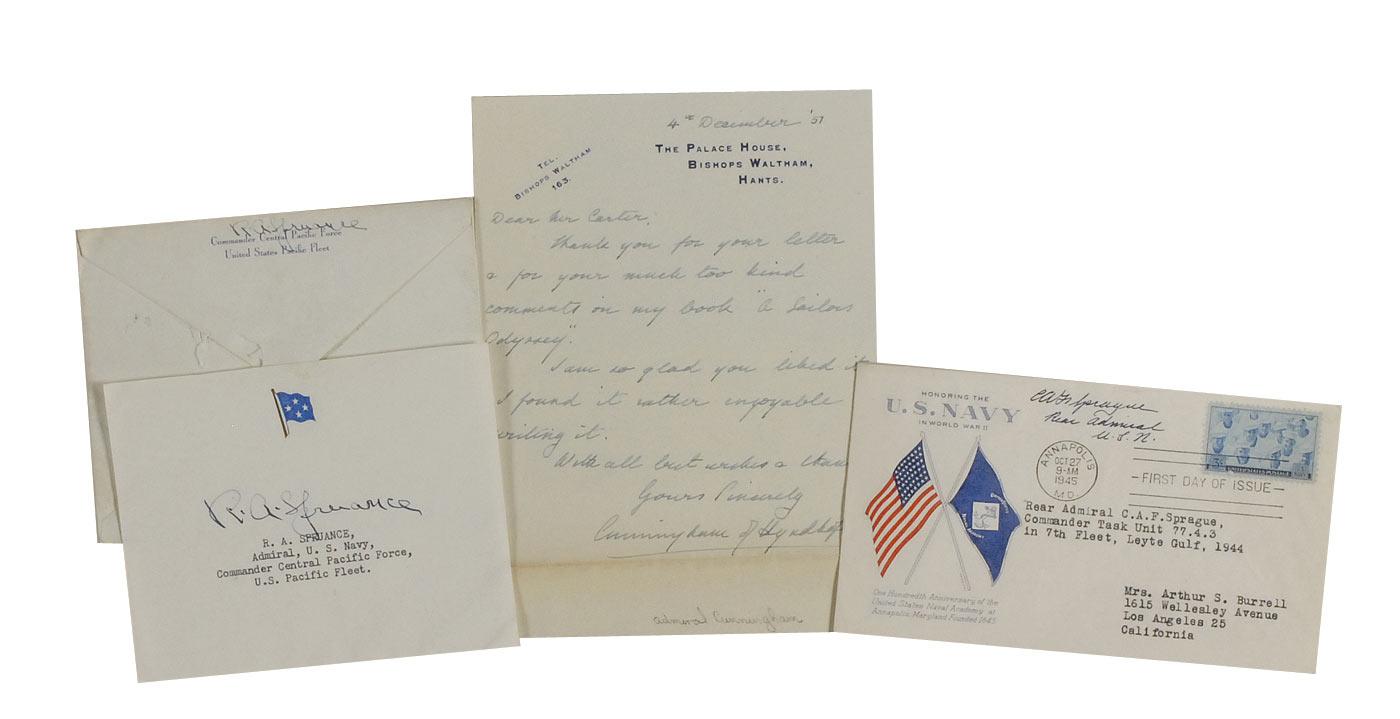 R. A. Spruance
Commander Central Pacific Force
United States Pacific Fleet
R. A. Spruance
R. A. SPRUANCE,
Admiral, U. S. Navy,
Commander Central Pacific Force,
U.S. Pacific Fleet.
4th December '57
THE PALACE HOUSE,
BISHOPS WALTHAM,
HANTS.
TEL.
BISHOPS WALTHAM
163.
Dear Mr Carter,
Thank you for your letter
& for your much too kind
comments on my book "A Sailors
Odyssey".
I am so glad you liked it
I found it rather enjoyable
writing it.
With all best wishes &
Yours Sincerely
Cunningham of Hyndhope
Admiral Cunningham
HONORING THE
U.S. NAVY
IN WORLD WAR II
CAF Sprague
Rear Admiral
U.S.N.
ANNAPOLIS
OCT 27
9-AM
1945
MD.
FIRST DAY OF ISSUE
UNITED STATES POSTAGE
3¢
Rear Admiral C.A.F.Sprague,
Commander Task Unit 77.4.3
in 7th Fleet, Leyte Gulf, 1944
One Hundredth Anniversary of the
United States Naval Academy at
Annapolis, Maryland Founded 1845
Mrs. Arthur S. Burrell
1615 Wellesley Avenue
Los Angeles 25
California